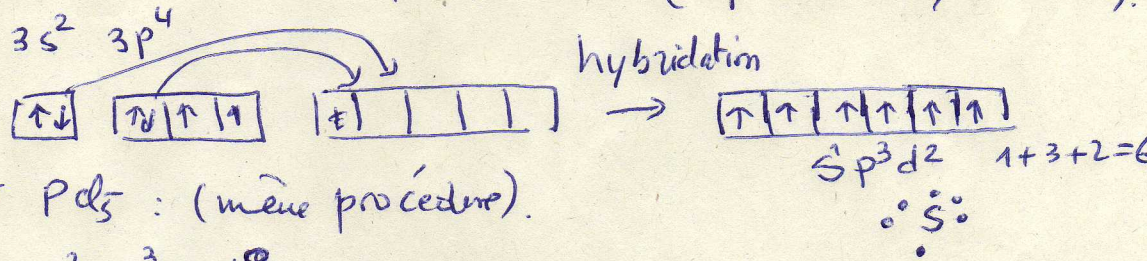 3s² 3p⁴
hybridation
↑↓ ↑↓ ↑ ↑ → ↑ ↑ ↑ ↑ ↑ ↑
sp³d² 1+3+2=6
PCl₅ : (même procédure).
S